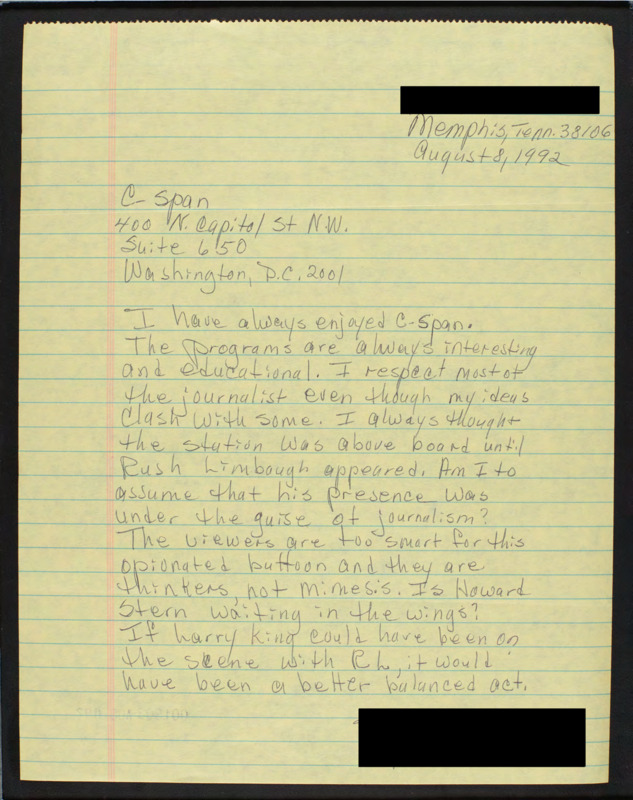 Memphis, Tenn. 38106
August 8, 1992
C-Span
400 N. Capitol St N.W.
Suite 650
Washington, D.C. 2001
I have always enjoyed C-Span.
The programs are always interesting
and educational. I respect most of
the journalist even though my ideas
Clash with some. I always thought
the station was above board until
Rush Limbaugh appeared. Am I to
assume that his presence was
under the guise of journalism?
The viewers are too smart for this
opionated buffoon and they are
thinkers, not mimesis. Is Howard
Stern waiting in the wings?
If Larry King could have been on
the scene with RL, it would
have been a better balanced act.